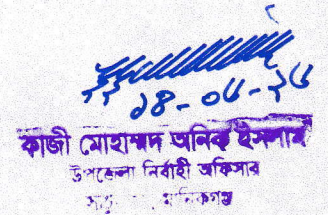 ১৪-০৮-২৫
কাজী মোহাম্মদ অনিক ইসলাম
উপজেলা নির্বাহী অফিসার
মানিকগঞ্জ